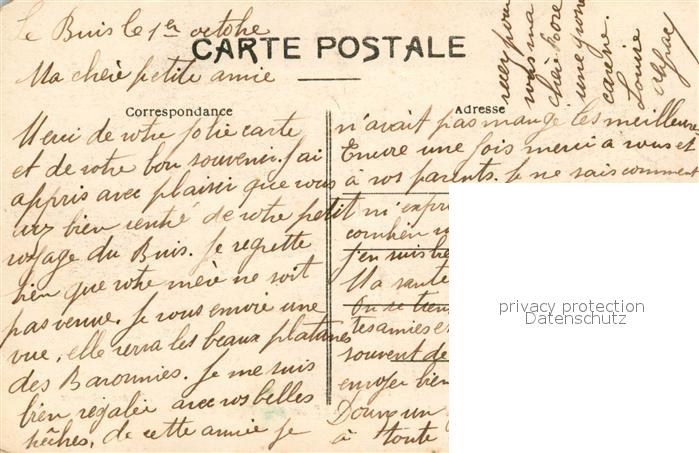 Le Buis le 1er octobre
CARTE POSTALE
Ma chère petite amie
Correspondance
Merci de votre jolie carte
et de votre bon souvenir. J'ai
appris avec plaisir que vous
bien rentré de votre petit
voyage du Buis. Je regrette
bien que votre mère ne soit
pas venue. Je vous envoie une
vue, elle verra les beaux platanes
des Baronnies. Je me suis
bien régalée avec vos belles
pêches, de cette année je
Adresse
n'avait pas mangé les meilleures
Encore une fois merci a vous et
à vos parents. Je ne sais comment
m'expri
combien
j'en suis
Ma santé
On se
tes amies
souvent de
envoyer bien
Douve un
à toute
recevez pour
vous ma
chère
une grosse
caresse.
Louise
privacy protection
Datenschutz